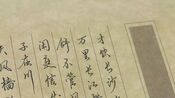 才饮长沙
万里长江
舒不管风
闲庭信
子在川
夫风樯